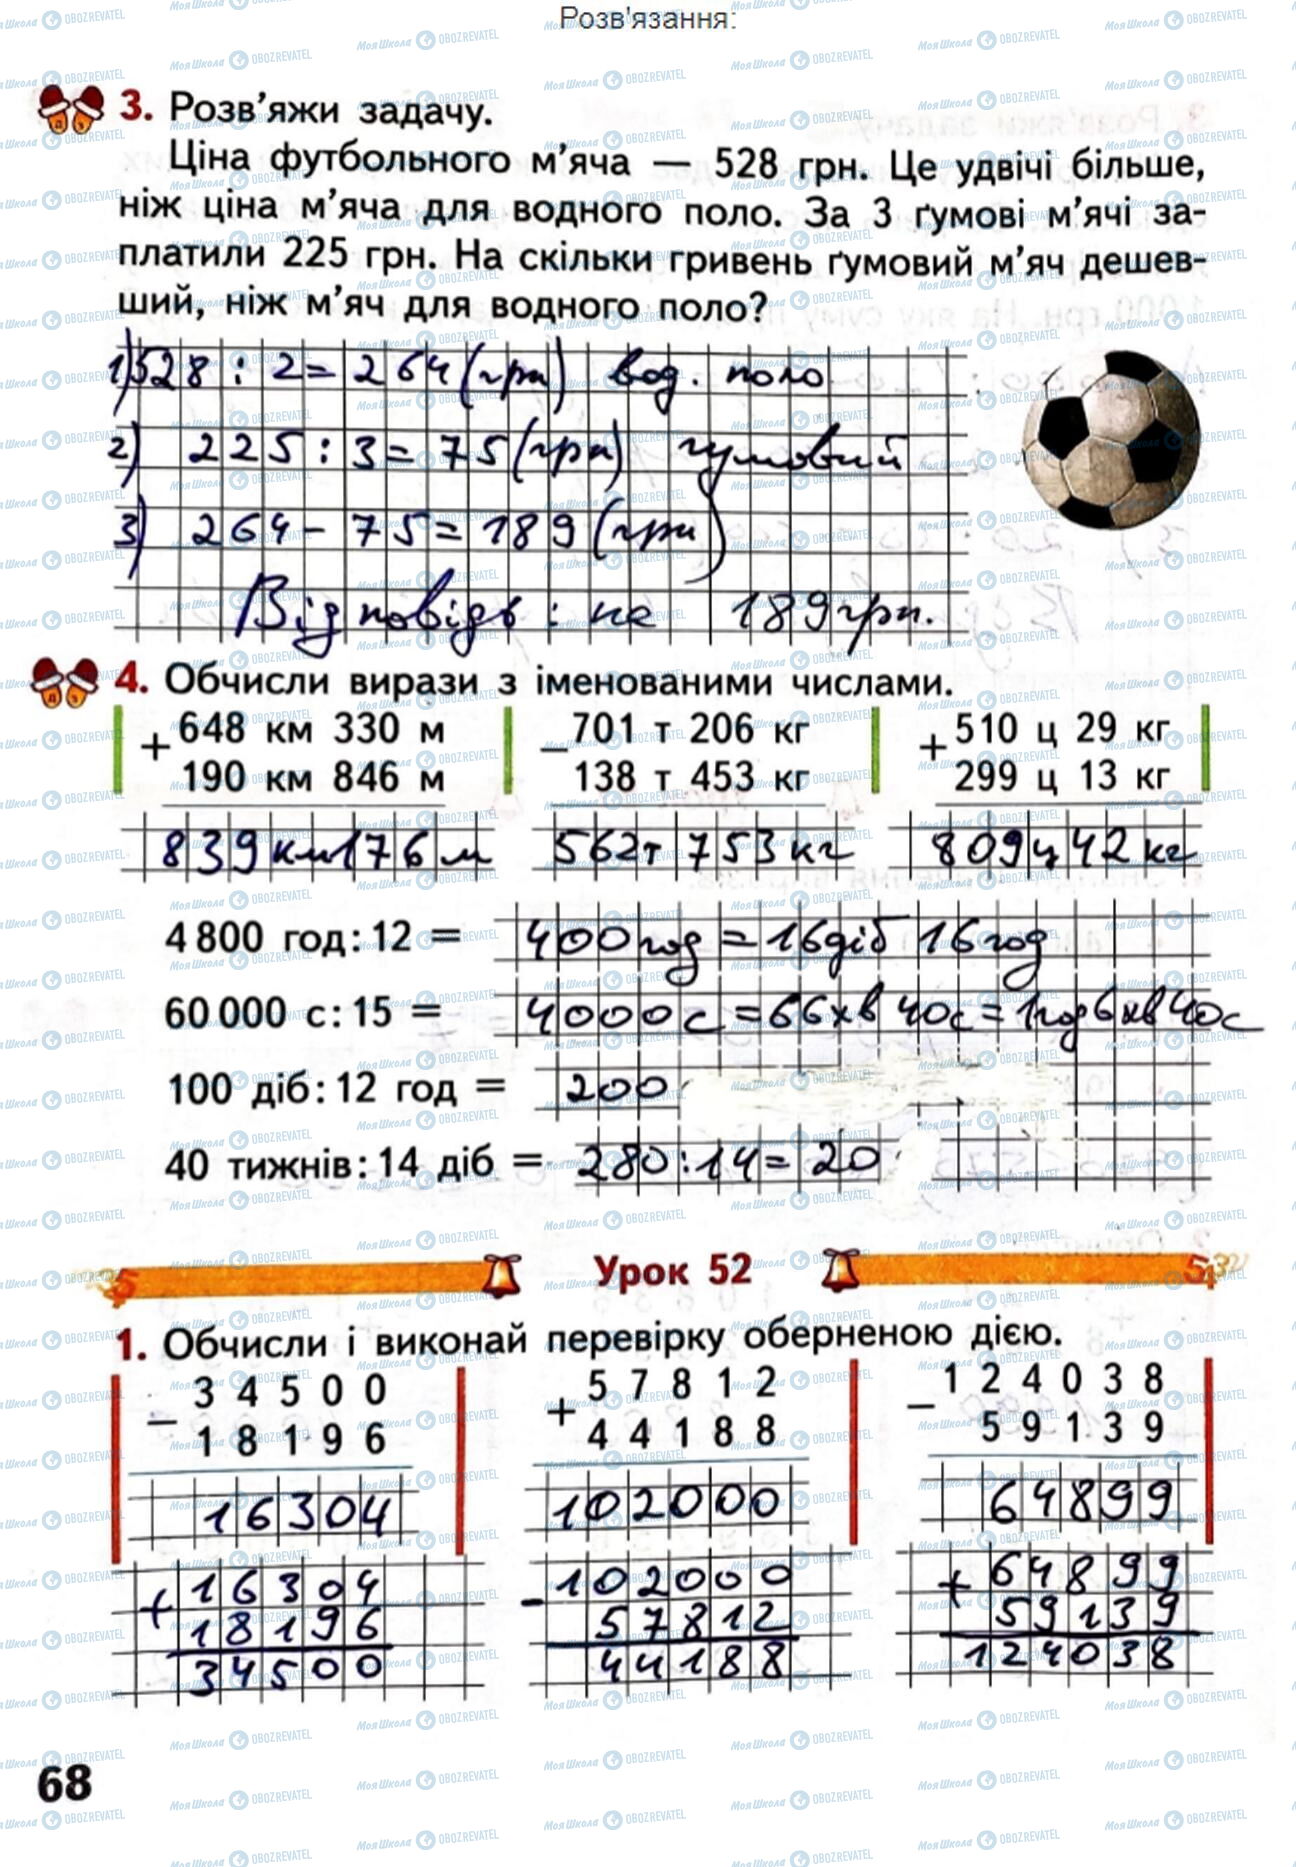 Розв'язання:
3. Розв’яжи задачу.
Ціна футбольного м’яча — 528 грн. Це удвічі більше,
ніж ціна м’яча для водного поло. За 3 ґумові м’ячі за-
платили 225 грн. На скільки гривень ґумовий м’яч дешев-
ший, ніж м’яч для водного поло?
1) 528 : 2 = 264 (грн) вод. поло
2) 225 : 3 = 75 (грн) гумовий
3) 264 - 75 = 189 (грн)
Відповідь : на 189 грн.
4. Обчисли вирази з іменованими числами.
+ 648 км 330 м − 701 т 206 кг + 510 ц 29 кг
190 км 846 м 138 т 453 кг 299 ц 13 кг
839 км 176 м 562 т 753 кг 809 ц 42 кг
4 800 год : 12 = 400 год = 16 діб 16 год
60 000 с : 15 = 4000 с = 66 хв 40 с = 1 год 6 хв 40 с
100 діб : 12 год = 200
40 тижнів : 14 діб = 280 : 14 = 20
Урок 52
1. Обчисли і виконай перевірку оберненою дією.
− 34500 + 57812 − 124038
18196 44188 59139
16304 102000 64899
+ 16304 - 102000 + 64899
18196 57812 59139
34500 44188 124038
68